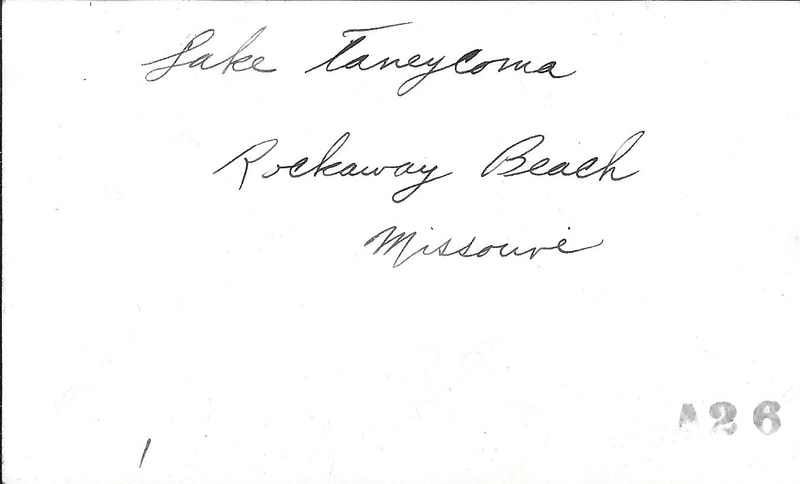 Lake Taneycoma
Rockaway Beach
Missouri
A26
1